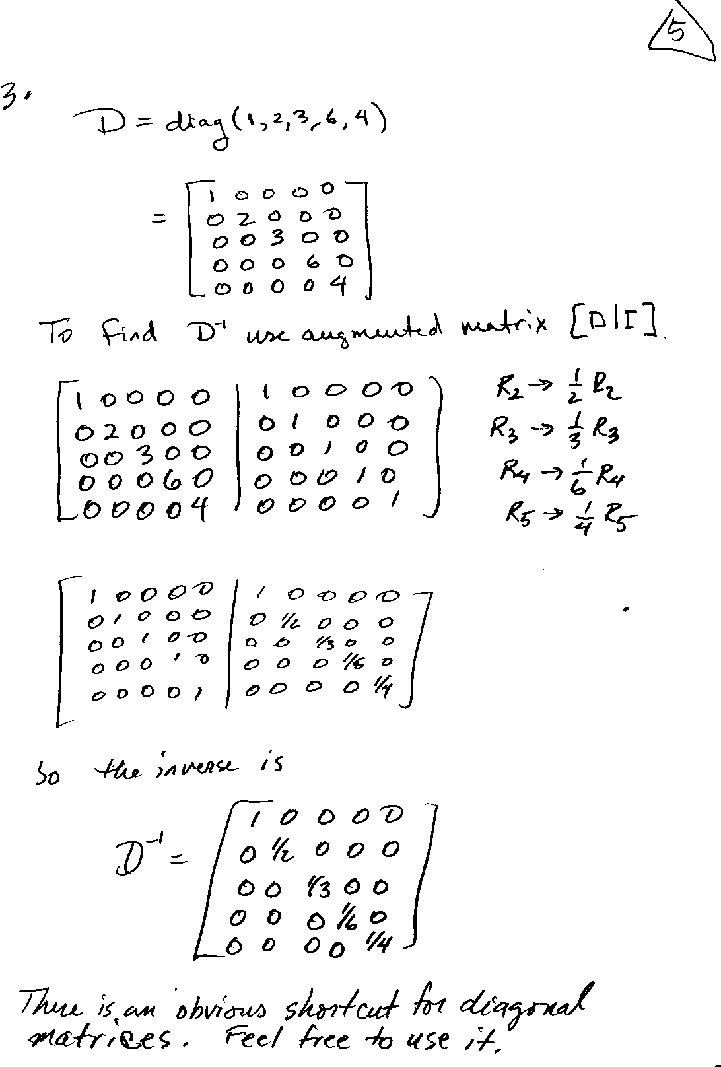 5
3.
D = diag(1,2,3,6,4)
= [1 0 0 0 0
0 2 0 0 0
0 0 3 0 0
0 0 0 6 0
0 0 0 0 4]
To find D⁻¹ use augmented matrix [D|I].
[1 0 0 0 0 | 1 0 0 0 0] R₂ → 1/2 R₂
0 2 0 0 0 | 0 1 0 0 0 R₃ → 1/3 R₃
0 0 3 0 0 | 0 0 1 0 0 R₄ → 1/6 R₄
0 0 0 6 0 | 0 0 0 1 0 R₅ → 1/4 R₅
0 0 0 0 4 | 0 0 0 0 1
[1 0 0 0 0 | 1 0 0 0 0]
0 1 0 0 0 | 0 1/2 0 0 0
0 0 1 0 0 | 0 0 1/3 0 0
0 0 0 1 0 | 0 0 0 1/6 0
0 0 0 0 1 | 0 0 0 0 1/4
So the inverse is
D⁻¹ = [1 0 0 0 0
0 1/2 0 0 0
0 0 1/3 0 0
0 0 0 1/6 0
0 0 0 0 1/4]
There is an obvious shortcut for diagonal
matrices. Feel free to use it.